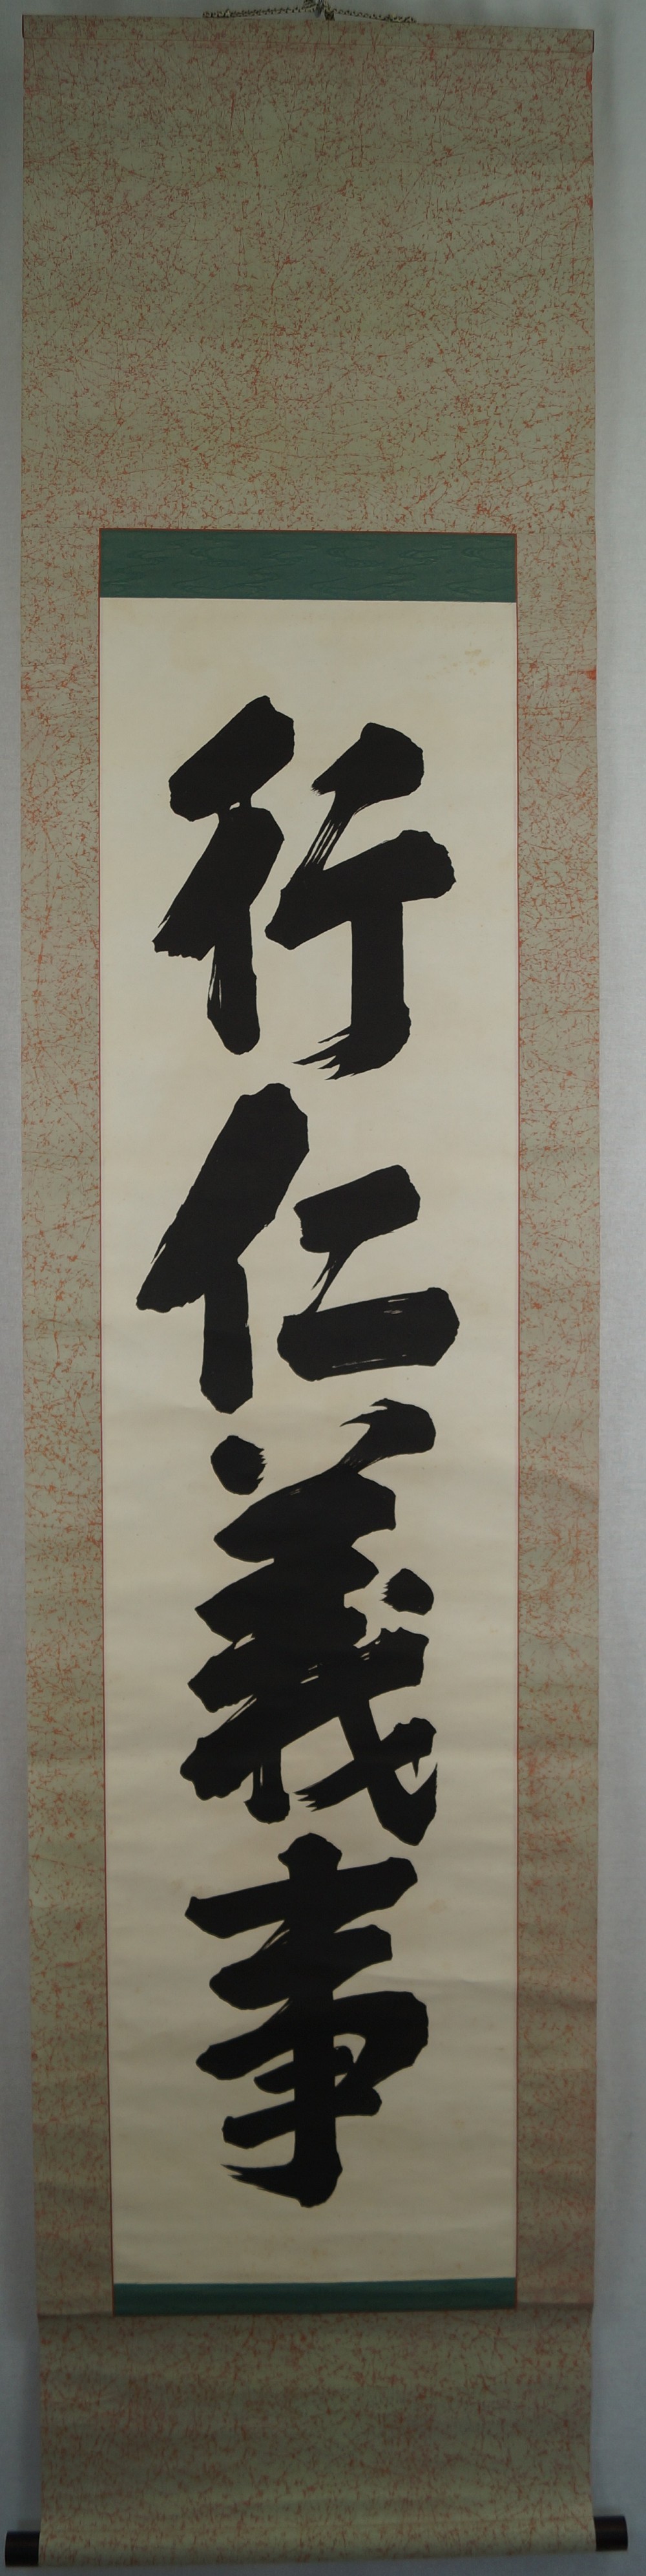 行仁義事